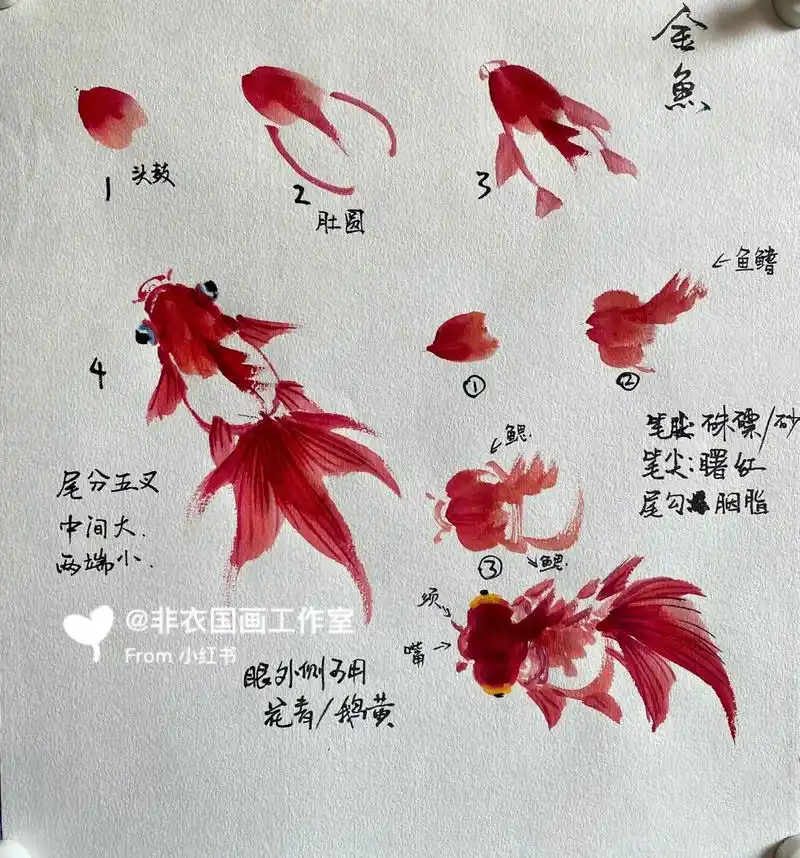 金魚
1 头鼓
2 肚圆
3
4
尾分五叉
中间大.
两端小.
①
②
←鱼鳍
笔肚:硃磦/砂
笔尖:曙红
尾勾 胭脂
←鳃.
③
→鳃.
须
嘴→
眼外侧可用
花青/鹅黄
@非衣国画工作室
From 小红书